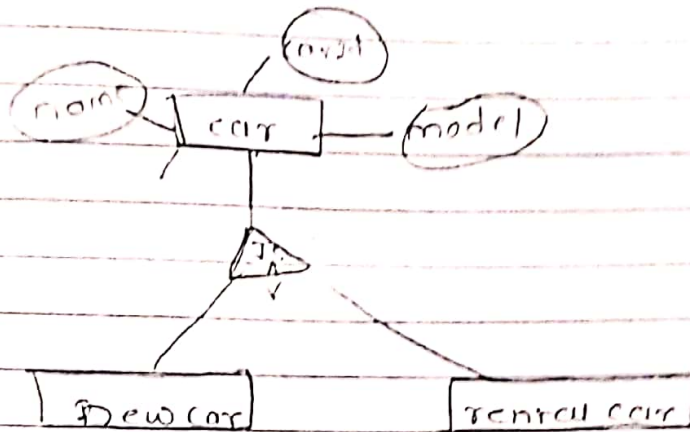 name
car
model
New car
rental car